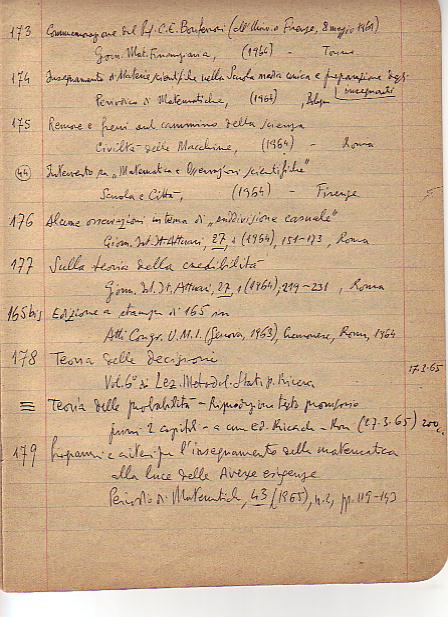 173 Commemorazione del Prof. C.E. Bonferroni (all'Univ. di Firenze, 8 maggio 1964)
Giorn. Mat. Finanziaria, (1964) - Torino
174 Insegnamento di Materie scientifiche nella Scuola media unica e preparazione degli
insegnanti
Periodico di Matematiche, (1964), Bologna
175 Remore e freni sul cammino della scienza
Civiltà delle Macchine, (1964) - Roma
44 Intervento su "Matematica e Osservazioni scientifiche"
Scuola e Città, (1964) - Firenze
176 Alcune osservazioni in tema di "suddivisione casuale"
Giorn. Ist. It. Attuari, 27, 1 (1964), 151-173, Roma
177 Sulla teoria della credibilità
Giorn. Ist. It. Attuari, 27, 1 (1964), 219-231, Roma
165 bis Edizione a stampa di 165 in
Atti Congr. U.M.I. (Genova, 1963), Cremonese, Roma, 1964
178 Teoria delle decisioni 17.3.65
Vol. 6° di Lez. Metodol. Stat. p. Ricerc.
Teoria delle probabilità - Riproduzione testo provvisorio
primi 2 capitoli - a cura ed. Ricerche - Roma (27.3.65) 200 c.
179 Programmi e criteri per l'insegnamento della matematica
alla luce delle diverse esigenze
Periodico di Matematiche, 43 (1965), n.2, pp. 119-143